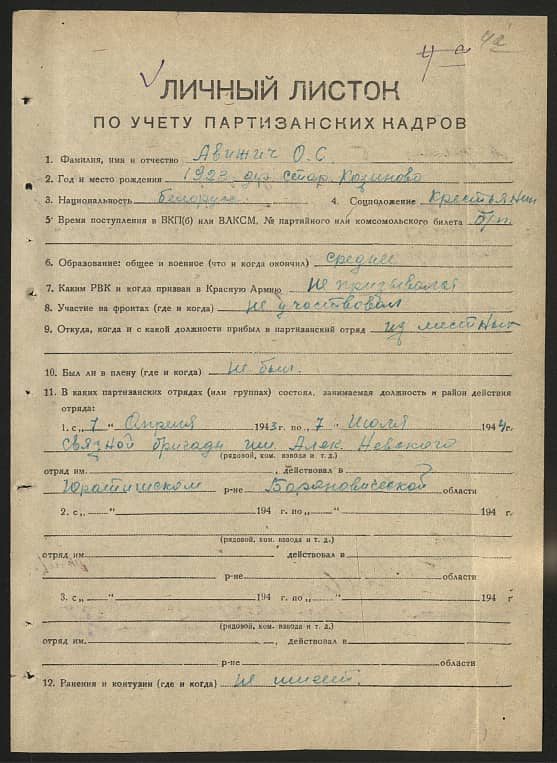 4а
ЛИЧНЫЙ ЛИСТОК
ПО УЧЕТУ ПАРТИЗАНСКИХ КАДРОВ
1. Фамилия, имя и отчество Авижич О.С.
2. Год и место рождения 1923 дер. Стар. Казиново
3. Национальность белорус 4. Соцположение Крестьянин
5. Время поступления в ВКП(б) или ВЛКСМ, № партийного или комсомольского билета б/п
6. Образование: общее и военное (что и когда окончил) среднее
7. Каким РВК и когда призван в Красную Армию не призывался
8. Участие на фронтах (где и когда) не участвовал
9. Откуда, когда и с какой должности прибыл в партизанский отряд из местных
10. Был ли в плену (где и когда) не был.
11. В каких партизанских отрядах (или группах) состоял, занимаемая должность и район действия
отряда:
1. с „1“ Апреля 1943 г. по „7“ Июля 1944 г.
связной бригады им. Алек. Невского
(рядовой, ком. взвода и т. д.)
отряд им. , действовал в
Юратишском р-не Барановической области
2. с „ “ 194 г. по „ “ 194 г.
(рядовой, ком. взвода и т. д.)
отряд им. , действовал в
р-не области
3. с „ “ 194 г. по „ “ 194 г
(рядовой, ком. взвода и т. д.)
отряд им. , действовал в
р-не области
12. Ранения и контузии (где и когда) не имеет.